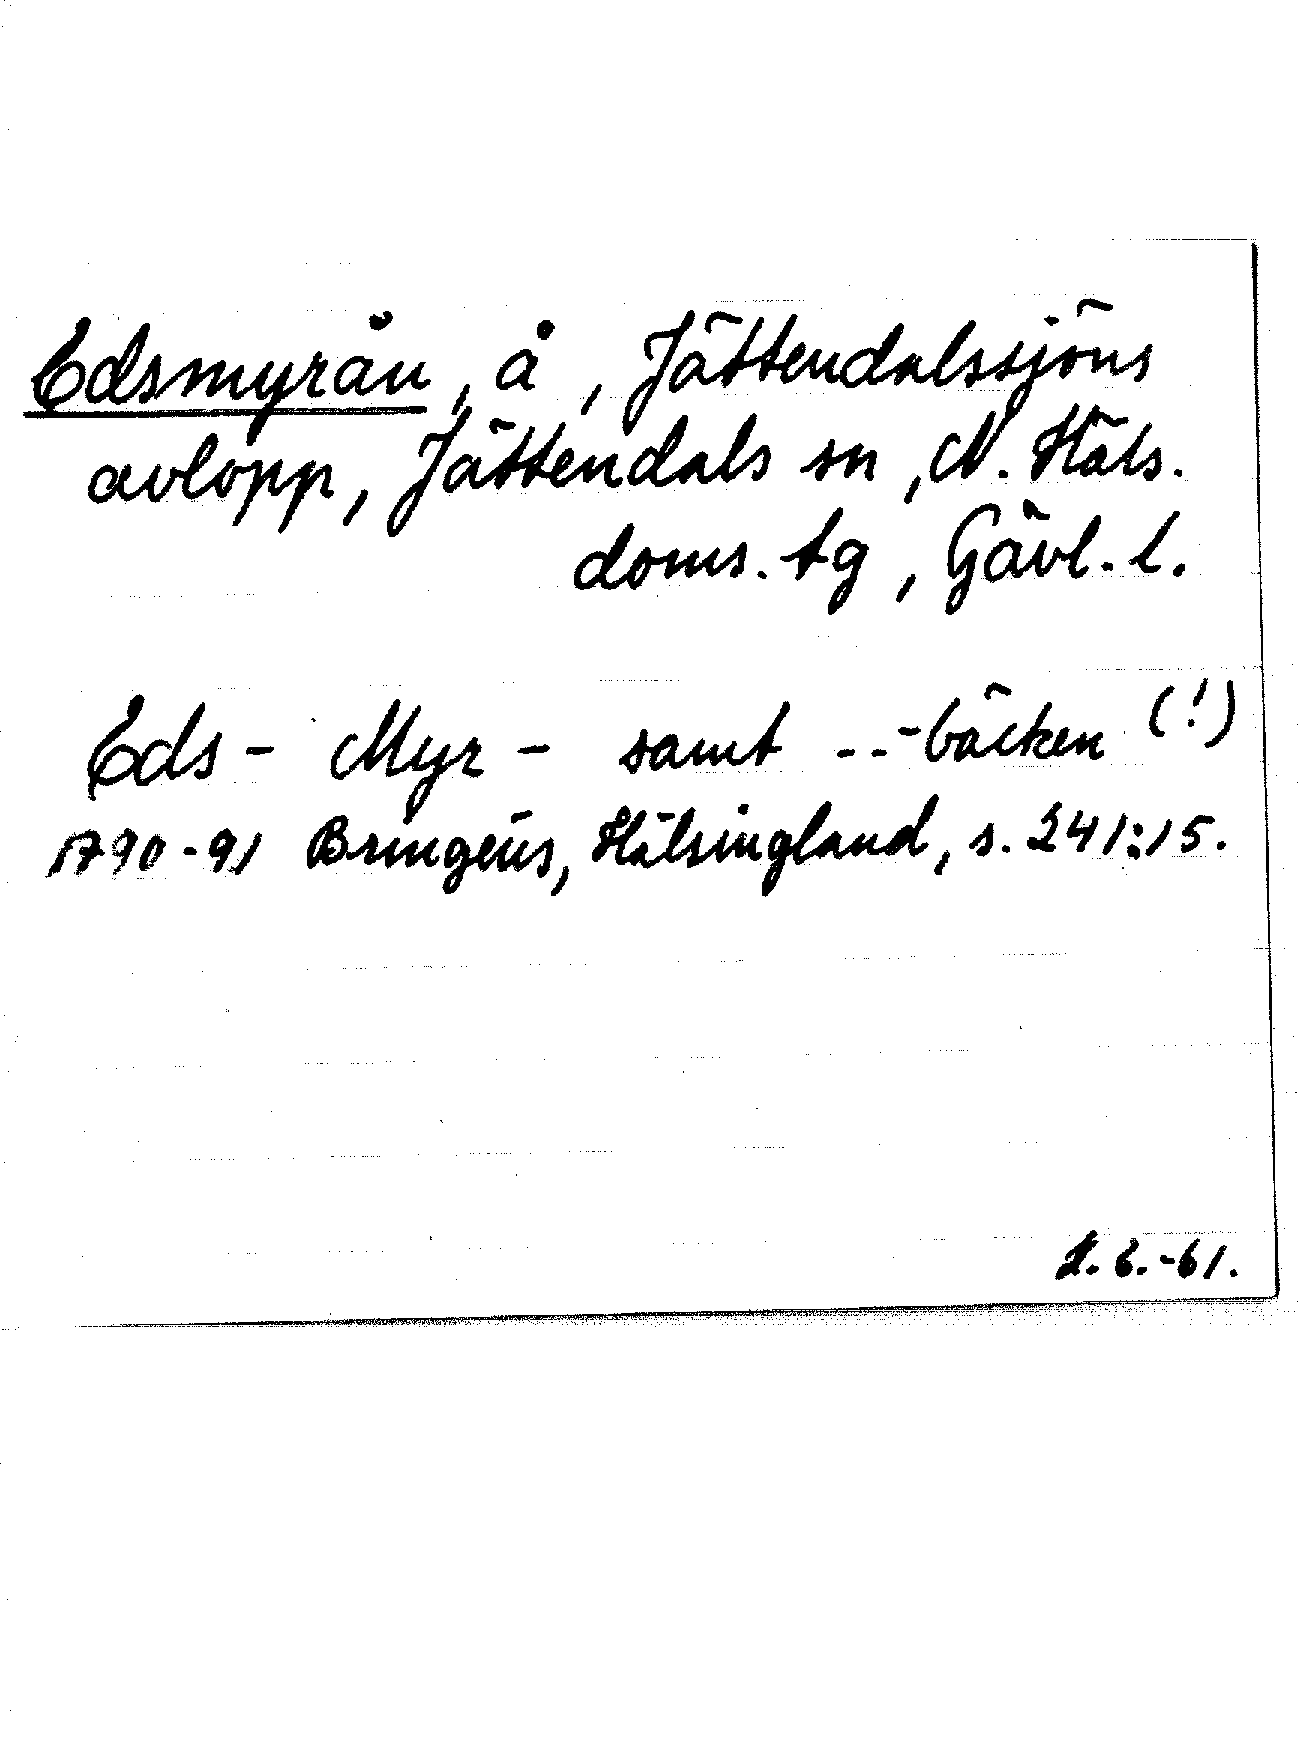 Edsmyrån, å, Jättendalssjöns
avlopp, Jättendals sn, N. Häls.
doms. tg, Gävl. l.
Eds- Myr- samt - - -bäcken (!)
1790-91 Bringéus, Hälsingland, s. 241:15.
-61.